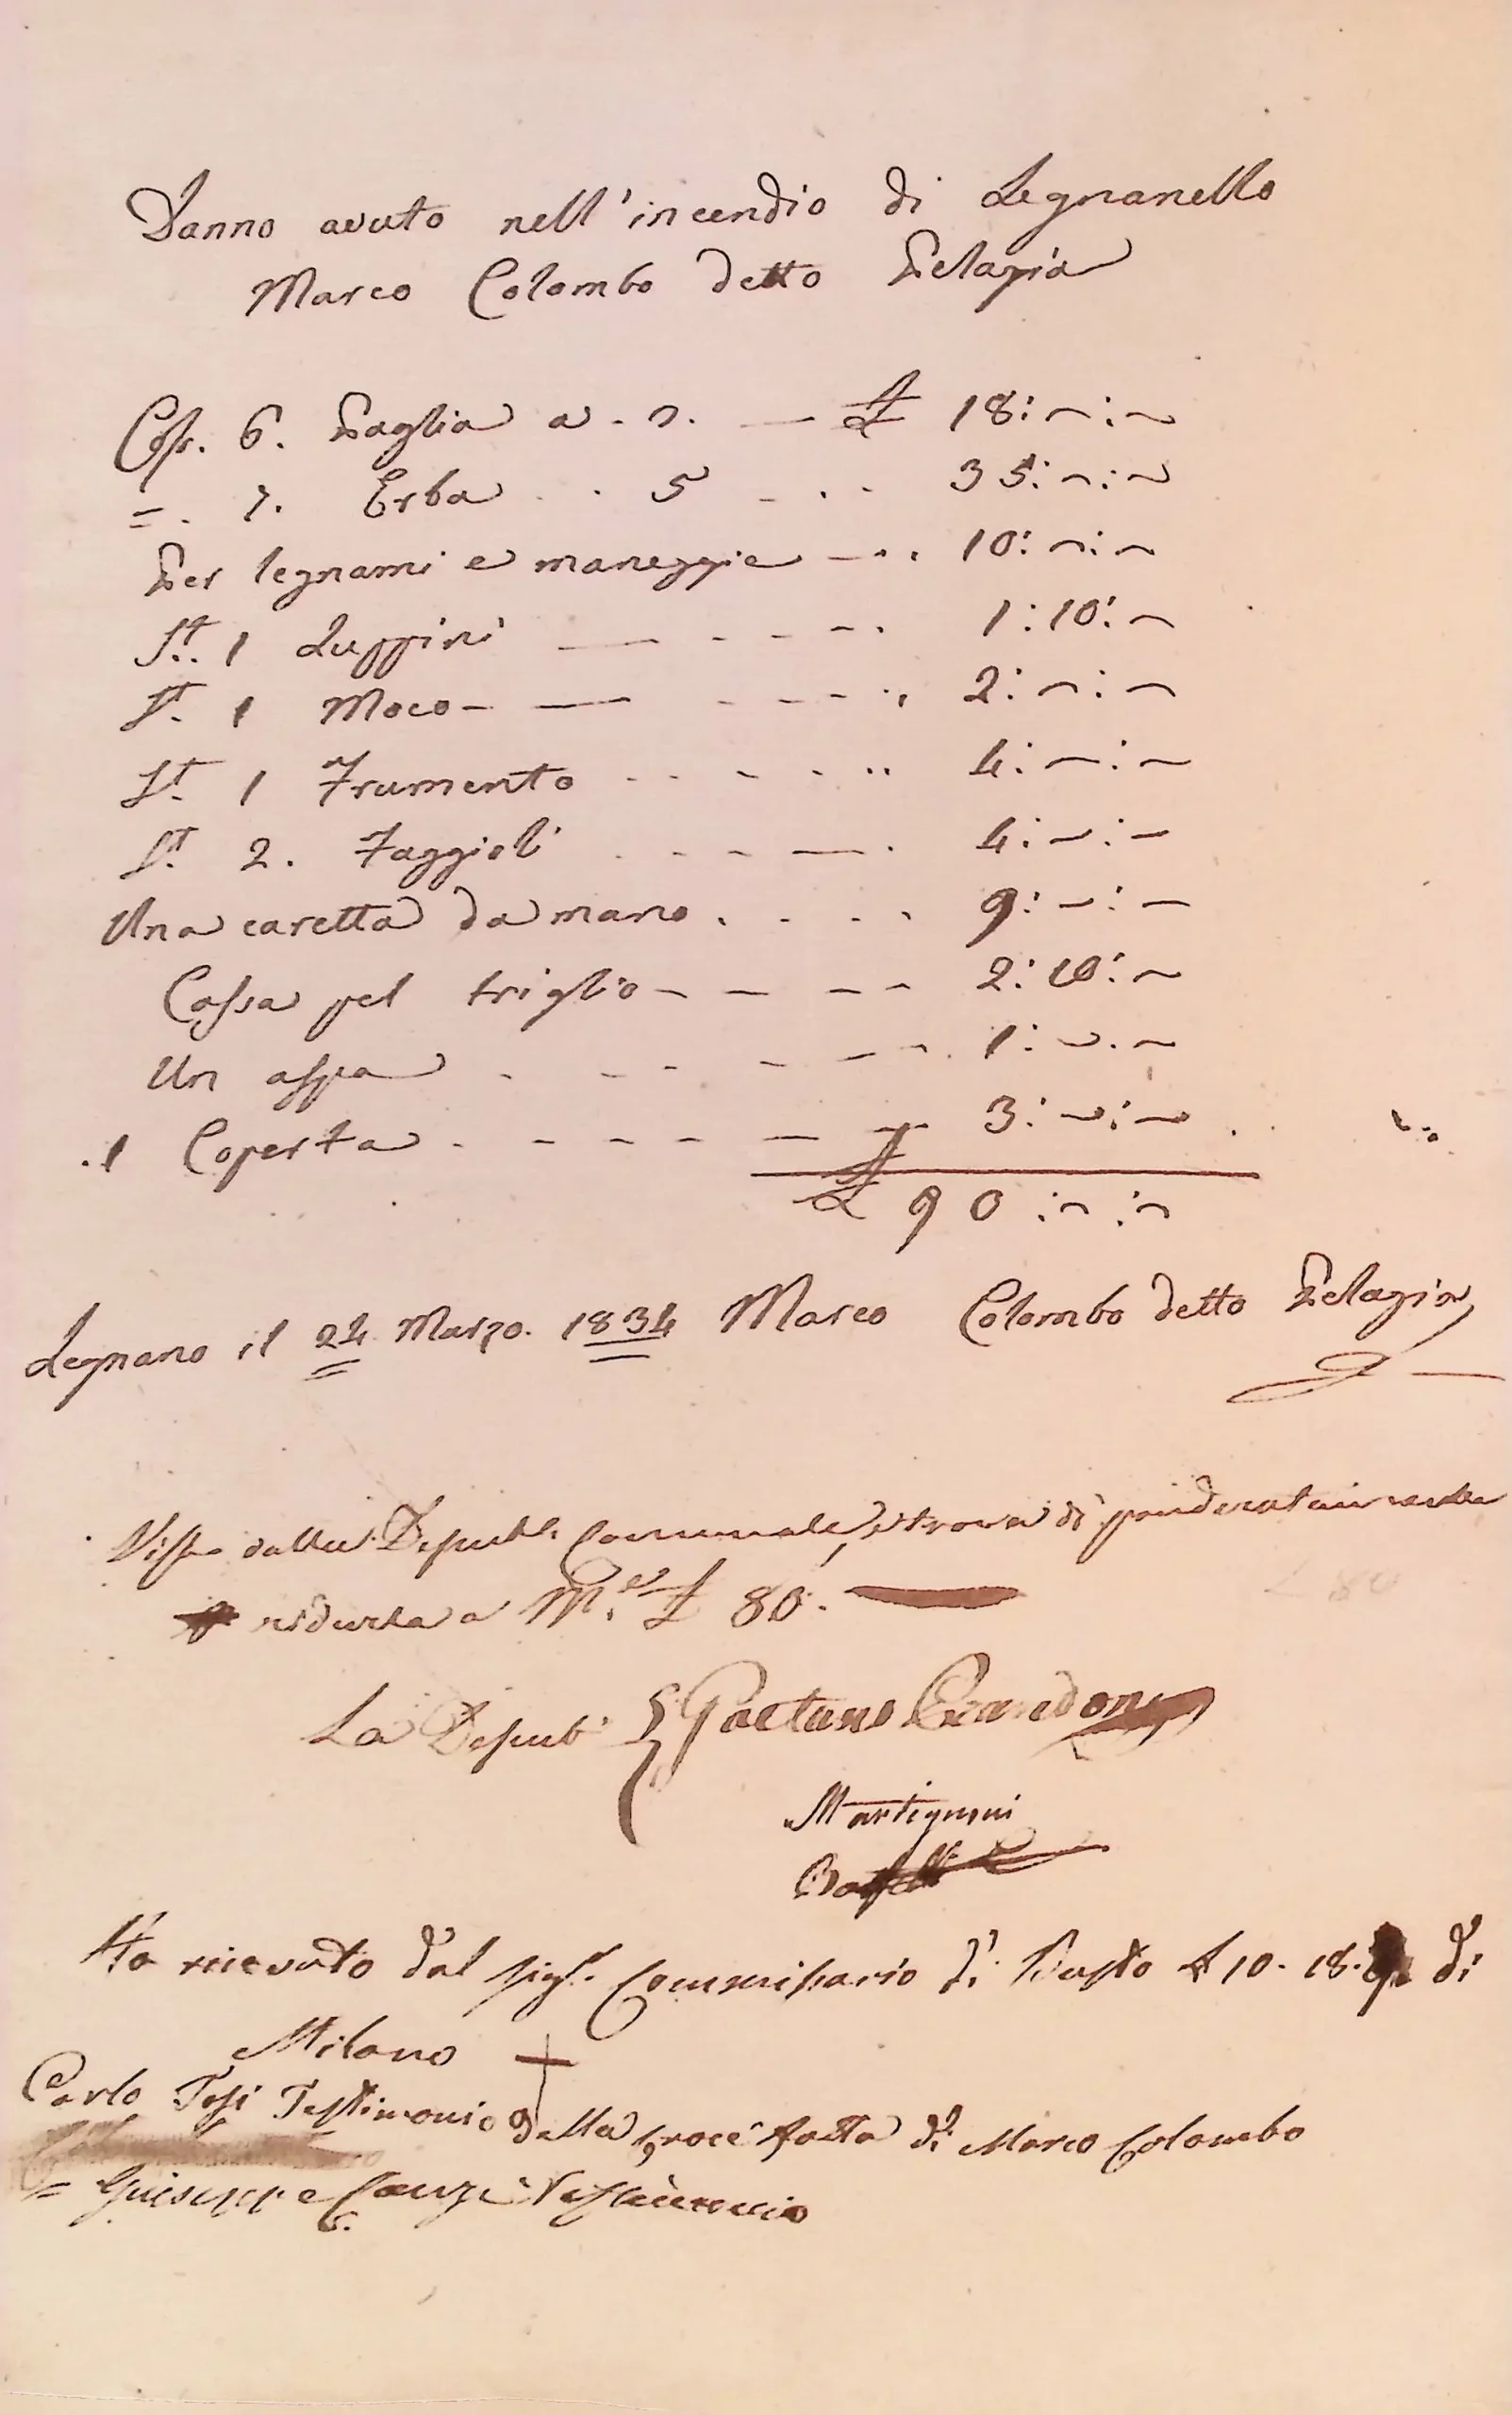 Danno avuto nell'incendio di Legnanello
Marco Colombo detto Pelagia
Cass. 6. Paglia a . 3. — £ 18:~:~
=. 7. Erba . . 5 - . . 35:~:~
Per legnami e maneggie — . . 10:~:~
St. 1 Luppini — - - - - . 1:10:~
St. 1 Moco - — - - - . , 2:~:~
St. 1 Frumento . . - . .. 4:~:~
St. 2. Faggioli . - - — . 4:~:~
Una caretta da mano . . . . 9:~:~
Cassa pel triglio - - - - 2:10:~
Un aspa . - - - - - . 1:~.~
.1 Coperta . - - - - — - 3:~:~
£ 90:~:~
Legnano il 24 Marzo. 1834 Marco Colombo detto Pelagia
Visto dalla Deput. Comunale, si trova di
ridurla a M. £ 80.
La Deput. Gaetano
Martignoni
Ha ricevuto dal Sigr. Commissario di Busto £ 10. 18. di
Milano +
Carlo Tosi Testimonio della Croce fatta di Marco Colombo
= Giuseppe Canzi Testimonio